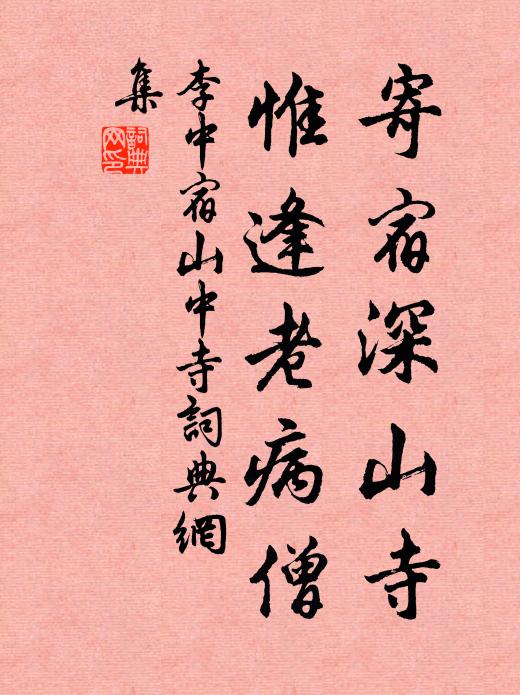 寄宿深山寺
惟逢老病僧
李中宿山中寺詞典網
集
詞典
网印